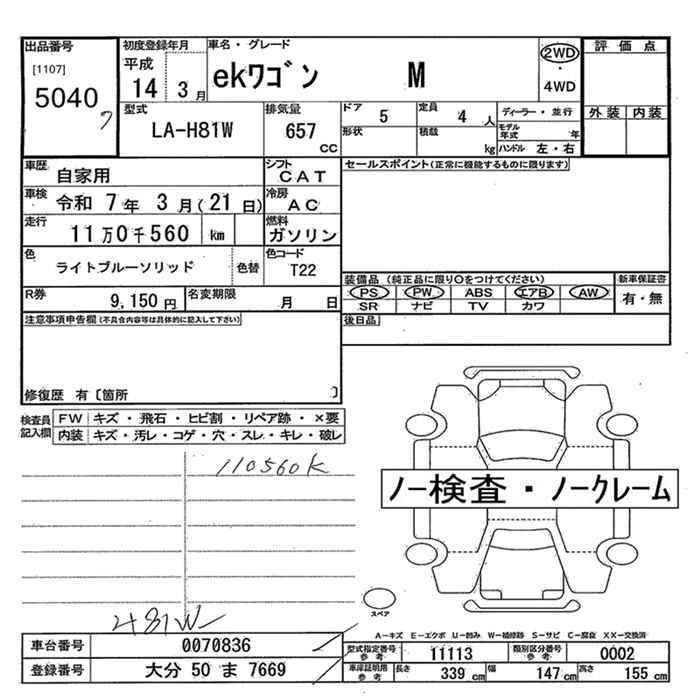 出品番号 初度登録年月 車名・グレード 評価点
[1107] 平成 14 3月 ekワゴン M 2WD・4WD
5040 型式 排気量 ドア 5 定員 4人 ディーラー・並行 外装 内装
LA-H81W 657cc 形状 積載 kg モデル年式 年 ハンドル 左・右
車歴 自家用 シフト CAT セールスポイント(正常に機能するものに限ります)
車検 令和 7年 3月(21日) 冷房 AC
走行 11万0千560 km 燃料 ガソリン
色 ライトブルーソリッド 色替 色コード T22
装備品 (純正品に限り○をつけてください) 新車保証書
PS PW ABS エアB AW 有・無
R券 9,150円 名変期限 月 日 SR ナビ TV カワ
注意事項申告欄(不具合内容等は具体的に記入して下さい) 後日品
修復歴 有〔箇所 〕
検査員記入欄 FW キズ・飛石・ヒビ割・リペア跡・×要
内装 キズ・汚レ・コゲ・穴・スレ・キレ・破レ
110560K
ノー検査・ノークレーム
スペア
H81W
A-キズ E-エクボ U-凹み W-補修跡 S-サビ C-腐食 XX-交換済
車台番号 0070836 型式指定番号参考 11113 類別区分番号参考 0002
登録番号 大分 50 ま 7669 車庫証明用参考 長さ 339cm 幅 147cm 高さ 155cm